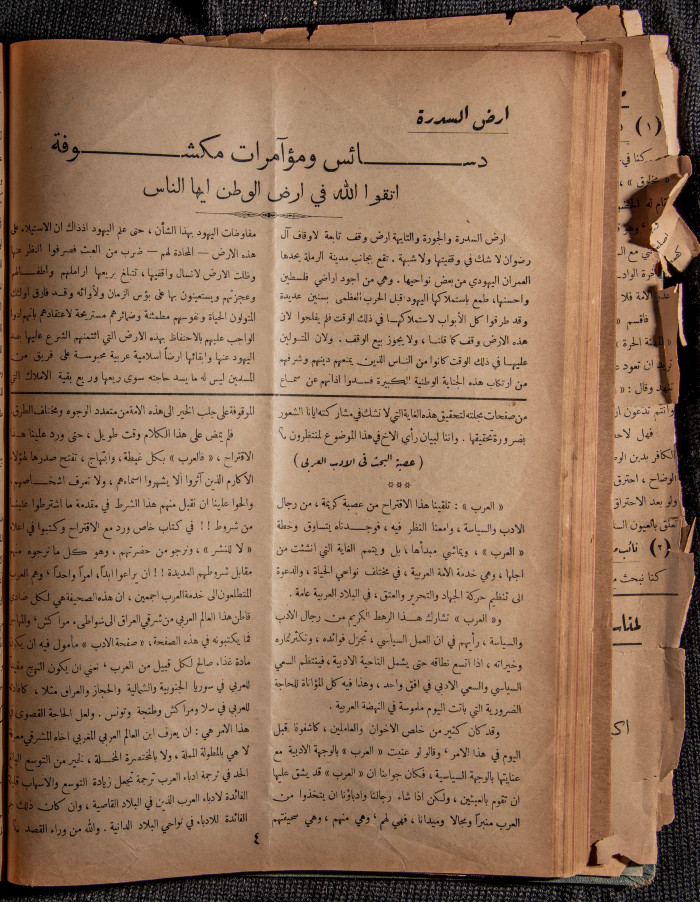 ارض السدرة
دسائس ومؤآمرات مكشوفة
اتقوا الله في ارض الوطن ايها الناس
ارض السدرة والجورة والتايهة ارض وقف تابعة لاوقاف آل
رضوان لا شك في وقفيتها ولا شبهة . تقع بجانب مدينة الرملة يحدها
العمران اليهودي من بعض نواحيها . وهي من اجود اراضي فلسطين
واحسنها ، طمع باستملاكها اليهود قبل الحرب العظمى بسنين عديدة
وقد طرقوا كل الأبواب لاستملاكها في ذلك الوقت فلم يفلحوا لان
هذه الارض وقف كما قلنا ، ولا يجوز بيع الوقف . ولان المتولين
عليها في ذلك الوقت كانوا من الناس الذين يمنعهم دينهم وشرفهم
من ارتكاب هذه الجناية الوطنية الكبيرة فسدوا اذانهم عن سماع
مفاوضات اليهود بهذا الشأن ، حتى علم اليهود اذذاك ان الاستيلاء على
هذه الارض — المحاذة لهم — ضرب من العبث فصرفوا النظر عنها
وظلت الارض لانسال واقفيها ، تنتفع بريعها اراملهم واطفالهم
وعجزتهم ويستعينون بها على بؤس الزمان ولأوائه وقد فارق اولئك
المتولون الحياة ونفوسهم مطمئنة وضمائرهم مستريحة لاعتقادهم بانهم ادوا
الواجب عليهم بالاحتفاظ بهذه الارض التي ائتمنهم الشرع عليها بعد
اليهود عنها وابقائها ارضاً اسلامية عربية محبوسة على فريق من
المسلمين ليس له ما يسد حاجته سوى ريعها وريع بقية الاملاك التي
من صفحات مجلته لتحقيق هذه الغاية التي لا نشك في مشاركته ايانا الشعور
بضرورة تحقيقها . واننا لبيان رأي الاخ في هذا الموضوع لمنتظرون ؟
( عصبة البحث في الادب العربي )
***
« العرب » : تلقينا هذا الاقتراح من عصبة كريمة ، من رجال
الادب والسياسة ، وامعنا النظر فيه ، فوجدناه يتساوق وخطة
« العرب » ، ويماشي مبدأها ، بل ويتمم الغاية التي انشئت من
اجلها ، وهي خدمة الامة العربية ، في مختلف نواحي الحياة ، والدعوة
الى تنظيم حركة الجهاد والتحرير والعتق ، في البلاد العربية عامة .
و« العرب » تشارك هذا الرهط الكريم من رجال الادب
والسياسة ، رأيهم في ان العمل السياسي ، تجزل فوائده ، وتكثر ثماره
وخيراته ، اذا اتسع نطاقه حتى يشمل الناحية الادبية ، فينتظم السعي
السياسي والسعي الادبي في افق واحد ، وهذا فيه كل المؤاتاة للحاجة
الضرورية التي باتت اليوم ملموسة في النهضة العربية .
وقد كان كثير من خلص الاخوان والعاملين ، كاشفونا قبل
اليوم في هذا الامر ، وقالو لو عنيت « العرب » بالوجهة الادبية مع
عنايتها بالوجهة السياسية ، فكان جوابنا ان « العرب » قد يشق عليها
ان تقوم بالعبئين ، ولكن اذا شاء رجالنا وادباؤنا ان يتخذوا من
العرب منبراً ومجالا وميدانا ، فهي لهم ، وهي منهم ، وهي صحيفتهم
الموقوفة على جلب الخير الى هذه الامة من متعدد الوجوه ومختلف الطرق .
فلم يمض على هذا الكلام وقت طويل ، حتى ورد علينا هذا
الاقتراح ، « فالعرب » بكل غبطة ، وابتهاج ، تفتح صدرها لهؤلاء
الاكارم الذين آثروا ألا يشهروا اسماءهم ، ولا تعرف اشخاصهم
والحوا علينا ان نقبل منهم هذا الشرط في مقدمة ما اشترطوا علينا
من شروط !! في كتاب خاص ورد مع الاقتراح وكتبوا في اعلاه
« لا للنشر » ، ونرجو من حضرتهم ، وهو كل ما نرجوه منهم
مقابل شروطهم العديدة !! ان يراعوا ابداً ، امراً واحداً ، وهم العرب
المتطلعون الى خدمة العرب اجمعين ، ان هذه الصحيفة هي لكل صادي
قاطن هذا العالم العربي من شرقي العراق الى شواطىء مراكش ،
فما يكتبونه في هذه الصفحة ، « صفحة الادب » مأمول فيه ان يكون
مادة غذاء صالح لكل قبيل من العرب ، نعني ان يكون النهج مفيداً
للعربي في سوريا الجنوبية والشمالية والحجاز والعراق مثلا ، كافادته
للعربي في سلا ومراكش وطنجة وتونس . ولعل الحاجة القصوى في
هذا الامر هي : ان يعرف ابن العالم العربي المغربي اخاه المشرقي معرفة
لا هي بالمطولة المملة ، ولا بالمختصرة المخلة ، لخير من التوسع البالغ
الحد في ترجمة ادباء العرب ترجمة تجعل زيادة التوسع والاسهاب قليلة
الفائدة لادباء العرب الذين في البلاد القاصية ، وان كان ذلك جم
الفائدة للادباء في نواحي البلاد الدانية . والله من وراء القصد ؟
٤
(١)
كنا في
« مخلوق »
فاقسم «
وقال : «
وانتم تدعون ان
فهل لاحد
الكافر بدين الوط
الوضاح ، احترق
ولو بعد الاحتراق
تعلق بالعيون الس
(٢) نائب
كنا نبحث